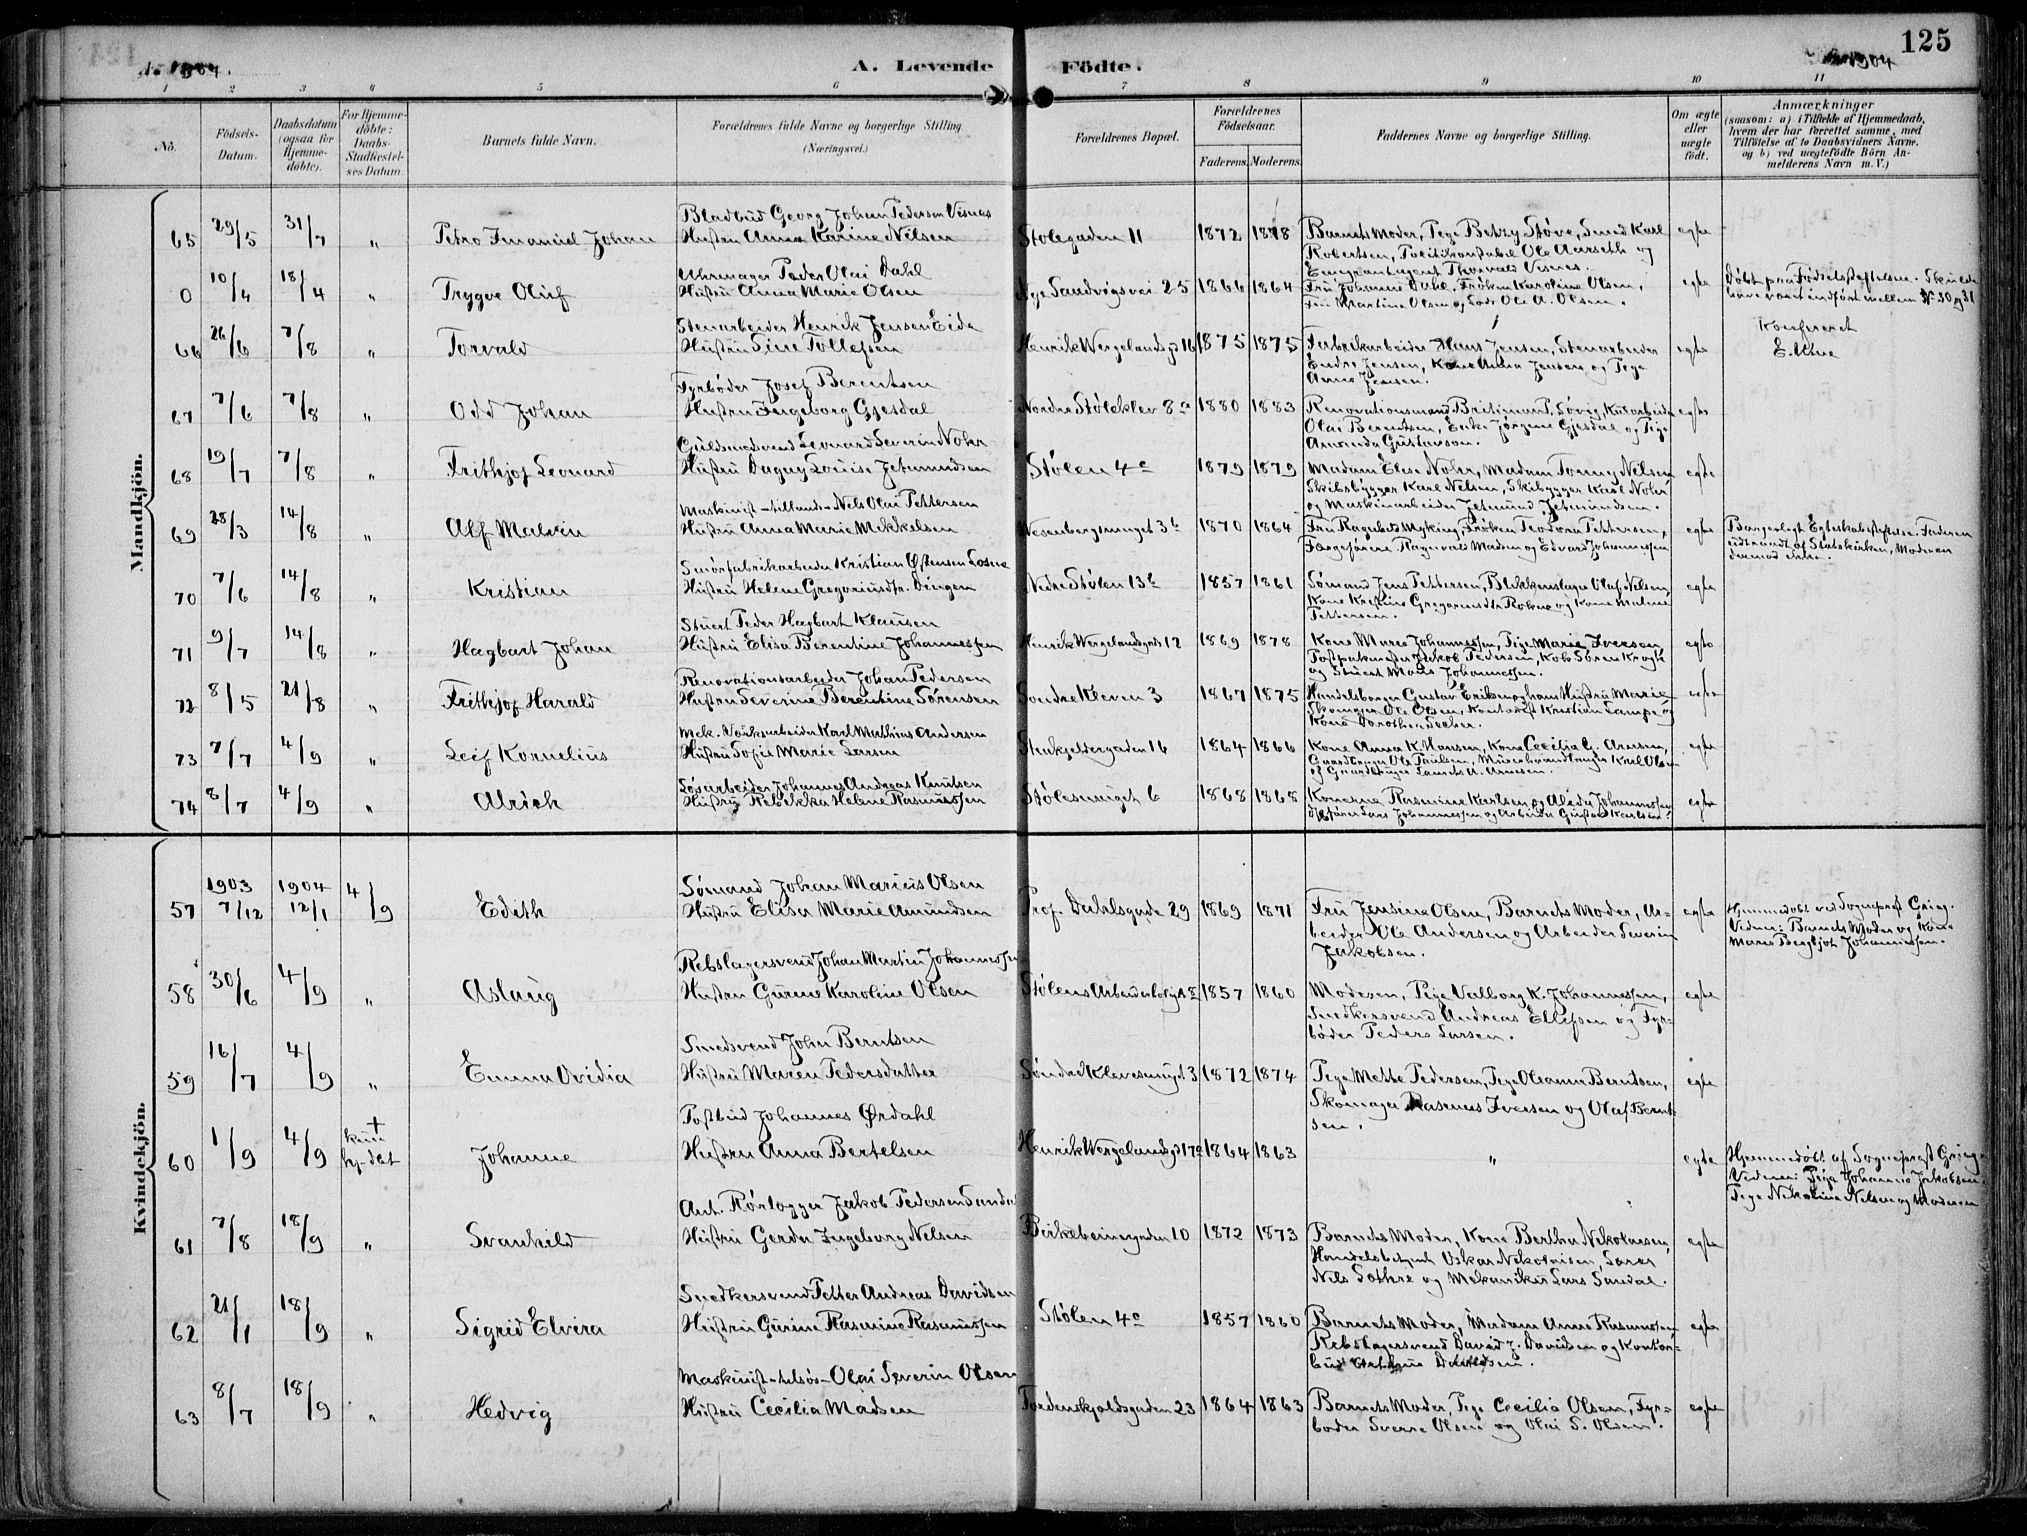 125
A. 1904.
A. Levende Fødte.
1904
1 2 3 4 5 6 7 8 9 10 11
No.
Fødsels-Datum.
Daabsdatum (ogsaa for Hjemme-døbte).
For Hjemme-døbte: Daabs-Stadfæstel-ses Datum.
Barnets fulde Navn.
Forældrenes fulde Navne og borgerlige Stilling (Næringsvei.)
Forældrenes Bopæl.
Forældrenes Fødselsaar.
Faderens. Moderens.
Faddernes Navne og borgerlige Stilling.
Om ægte eller uægte født.
Anmærkninger
(saasom: a) i Tilfælde af Hjemmedaab, hvem der har forrettet samme, med Tilføielse af to Daabsvidners Navne. og b) ved uægtefødte Børn An-melderens Navn m. V.)
Mandkjön.
Bladbud Georg Johan Pedersen Visnes
65 29/5 31/7 " Petro Emanuel Johan Hustru Anna Karine Nilsen Stølegaden 11 1872 1878 Barnets Moder, Pige Betzy Støve, Smed Karl egte
Robertsen, Politikonstabel Ole Aarseth og
Emigrantagent Thorvald Visnes.
Uhrmager Peder Olai Dahl
0 10/4 18/4 " Trygve Oluf Hustru Anna Marie Olsen Nye Sandvigsvei 25 1866 1864 Fru Johanne Dahl, Frøken Karoline Olsen, egte Døbt paa Fødselsstiftelsen. Skulde
Fru Martine Olsen og Lods Ole A. Olsen. have været indført mellem No 30 og 31
Konfereret
Stenarbeider Henrik Jensen Eide
66 26/6 7/8 " Torvald Hustru Sine Tollefsen Henrik Wergelandsg 16 1875 1875 Fabrikarbeider Hans Jensen, Stenarbeider egte
Endre Jensen, Kone Anna Jensen og Pige
Anne Jensen.
Fyrbøder Josef Berentsen
67 7/6 7/8 " Odd Johan Hustru Ingeborg Gjesdal Nordre Støleklev 8a 1880 1883 Renovationsmand Britiman P. Løvig, Kularbeider egte
Olai Berentsen, Enke Jørgine Gjesdal og Pige
Amanda Gustavson.
Guldsmedsvend Leonard Severin Nohr
68 19/7 7/8 " Frithjof Leonard Hustru Dagny Louise Jetmundsen Stølen 4c 1879 1879 Madam Elise Nohr, Madam Tonny Nilsen egte
Skibsbygger Karl Nelsen, Skibygger Karl Nohr
og Maskinarbeider Jetmund Jetmundsen.
Maskinist - tillands - Nels Olai Pettersen
69 28/3 14/8 " Alf Malvin Hustru Anna Marie Mikkelsen Wesenbergsmuget 3b 1870 1864 Fru Ragnhild Myking, Frøken Teodora Pettersen, egte Borgerlegt Egteskabsstiftelse. Faderen
Færgeførerne Ragnvald Madsen og Edvard Johannessen udtraadt af Statskirken, Moderen
derimod ikke.
Smørfabrikarbeider Kristian Østensen Losna
70 7/6 14/8 " Kristian Hustru Helene Gregoriusdtr. Dingen Nedre Stølen 13b 1857 1861 Sømand Jens Pettersen, Blikkenslager Olaf Nelsen, egte
Kone Kristine Gregoriusdtr Rokne og Kone Malene
Pettersen.
Stuert Peder Hagbart Klausen
71 9/7 14/8 " Hagbart Johan Hustru Elisa Berentine Johannessen Henrik Wergelandsgade 12 1869 1878 Kone Marie Johannessen, Pige Marie Iversen egte
Postpakmester Jakob Pedersen, Kok Søren Krogh
og Stuert Mons Johannessen.
Renovationsarbeider Johan Pedersen
72 8/5 21/8 " Frithjof Harald Hustru Severine Berentine Sørensen Søndre Kleven 3 1867 1875 Handelsborger Gustav Eriksen og hans Hustru Marie egte
Skomager Ole Olsen, Kontorist Kristian Lampe og
Kone Dorothea Secher.
Mek. Værksarbeider Karl Mathias Andersen
73 7/7 4/9 " Leif Kornelius Hustru Sofie Marie Larsen Stenkjeldergaden 16 1864 1866 Kone Anna K. Hansen, Kone Cecilia G. Arnesen, egte
Gaardbruger Ole Paulsen, Murerhaandlanger Karl Olsen
Løsarbeider Johannes Andreas Knutsen
74 8/7 4/9 " Alrich Hustru Rebekka Helene Rasmussen Stølesmuget 6 1868 1868 Konerne Rasmine Karlsen og Alida Johannessen egte
Lars Johannessen og Arbeider Gustav Karlsen.
Kvindekjön.
1903 1904 Sømand Johan Marius Olsen
57 7/12 12/1 4/9 Edith Hustru Elisa Marie Amundsen Prof. Dahlsgade 29 1869 1871 Fru Jensine Olsen, Barnets Moder, Ar- egte Hjemmedøbt ved Sogneprest Grieg.
beider Ole Andersen og Arbeider Severin Vidner: Barnets Moder og Kone
Jakobsen. Marie Bergljot Johannessen.
Rebslagersvend Johan Martin Johannessen
58 30/6 4/9 " Aslaug Hustru Gurine Karoline Olsen Stølens Arbeiderbolig A 8 1857 1860 Moderen, Pige Valborg K. Johannessen, egte
Snedkersvend Andreas Ellefsen og Fyr-
bøder Peders Larsen.
Smedsvend John Berntsen
59 16/7 4/9 " Emma Ovidia Hustru Maren Pedersdatter Søndre Klevesmuget 3 1872 1874 Pige Mette Pedersen, Pige Oleanna Berntsen, egte
Skomager Rasmus Iversen og Olaf Bernt-
sen.
Postbud Johannes Ørdahl
60 1/9 4/9 † kun hj-døbt Johanne Hustru Anna Bertelsen Henrik Wergelandsg 17a 1864 1863 " egte Hjemmedøbt af Sogneprest Grieg
Vidner: Pige Johanne Jakobsen
Pige Nikoline Nilsen og Moderen
Ant. Rørlægger Jakob Pedersen Sandal
61 7/8 18/9 " Svanhild Hustru Gerda Ingeborg Nelsen Birkebeinergaden 10 1872 1873 Barnets Moder, Kone Bertha Nikolaisen, egte
Handelsbetjent Oskar Nikolaisen, Lærer
Nils Sothre og Mekaniker Lars Sandal.
Snedkersvend Petter Andreas Davidsen
62 21/1 18/9 " Sigrid Elvira Hustru Gurine Rasmine Rasmussen Stølen 4c 1857 1860 Barnets Moder, Madam Anna Rasmussen, egte
Rebslagersvend David J. Davidsen og Kontor-
bud
Maskinist - tilsøs - Olai Severin Olsen
63 8/7 18/9 " Hedvig Hustru Cecilia Madsen Tordenskjoldsgaden 23 1864 1863 Barnets Moder, Pige Cecilia Olsen, Fyr- egte
bøder Sverre Olsen og Olai S. Olsen.